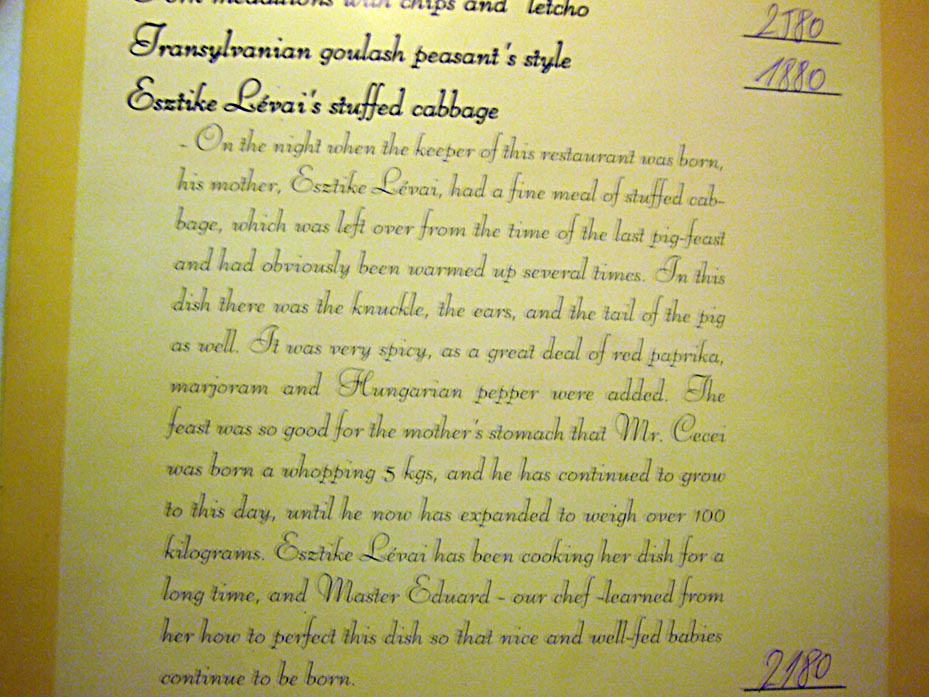 Pork medallions with chips and "letcho 2580
Transylvanian goulash peasant's style 1880
Esztike Lévai's stuffed cabbage
- On the night when the keeper of this restaurant was born,
his mother, Esztike Lévai, had a fine meal of stuffed cab-
bage, which was left over from the time of the last pig-feast
and had obviously been warmed up several times. In this
dish there was the knuckle, the ears, and the tail of the pig
as well. It was very spicy, as a great deal of red paprika,
marjoram and Hungarian pepper were added. The
feast was so good for the mother's stomach that Mr. Cecei
was born a whopping 5 kgs, and he has continued to grow
to this day, until he now has expanded to weigh over 100
kilograms. Esztike Lévai has been cooking her dish for a
long time, and Master Eduard - our chef -learned from
her how to perfect this dish so that nice and well-fed babies
continue to be born. 2180